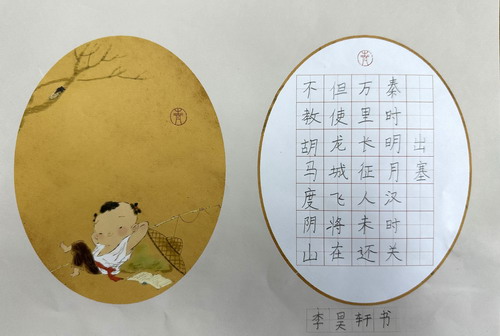 出塞
秦时明月汉时关
万里长征人未还
但使龙城飞将在
不教胡马度阴山
李昊轩书